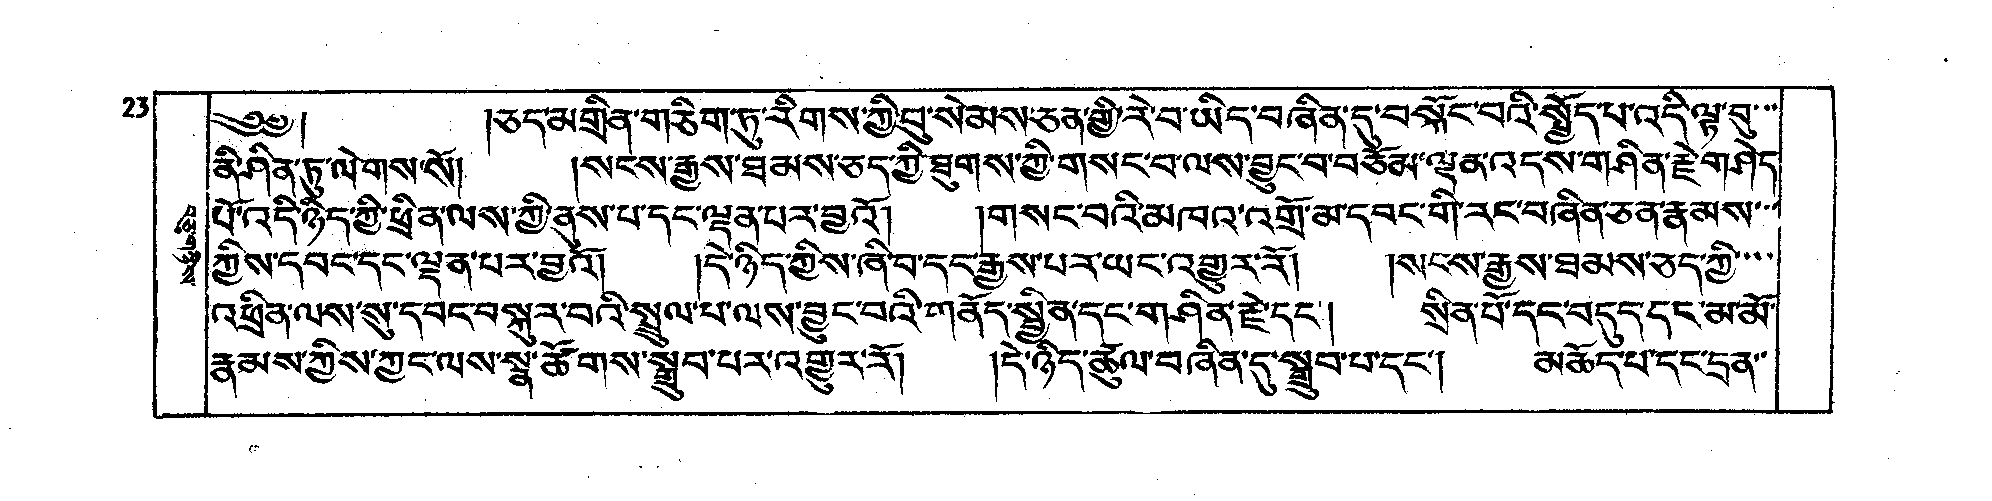 23
༄༅། །ཅད་མགྲིན་གཅིག་ཏུ་རིགས་ཀྱི་བུ་སེམས་ཅན་གྱི་རེ་བ་ཡིད་བཞིན་དུ་བསྐོང་བའི་སྤྱོད་པ་འདི་ལྟ་བུ་
ནི་ཤིན་ཏུ་ལེགས་སོ། །སངས་རྒྱས་ཐམས་ཅད་ཀྱི་ཐུགས་ཀྱི་གསང་བ་ལས་བྱུང་བ་བཅོམ་ལྡན་འདས་གཤིན་རྗེ་གཤེད་
པོ་འདི་ཉིད་ཀྱི་ཕྲིན་ལས་ཀྱི་ནུས་པ་དང་ལྡན་པར་བྱའོ། །གསང་བའི་མཁའ་འགྲོ་མ་དབང་གི་རང་བཞིན་ཅན་རྣམས་
ཀྱིས་དབང་དང་ལྡན་པར་བྱའོ། །དེ་ཉིད་ཀྱིས་ཞི་བ་དང་རྒྱས་པར་ཡང་འགྱུར་རོ། །སངས་རྒྱས་ཐམས་ཅད་ཀྱི་
འཕྲིན་ལས་སུ་དབང་བསྐུར་བའི་སྤྲུལ་པ་ལས་བྱུང་བའི་གནོད་སྦྱིན་དང་གཤིན་རྗེ་དང་། སྲིན་པོ་དང་བདུད་དང་མ་མོ་
རྣམས་ཀྱིས་ཀྱང་ལས་སྣ་ཚོགས་སྒྲུབ་པར་འགྱུར་རོ། །དེ་ཉིད་ཚུལ་བཞིན་དུ་སྒྲུབ་པ་དང་། མཆོད་པ་དང་དྲན་